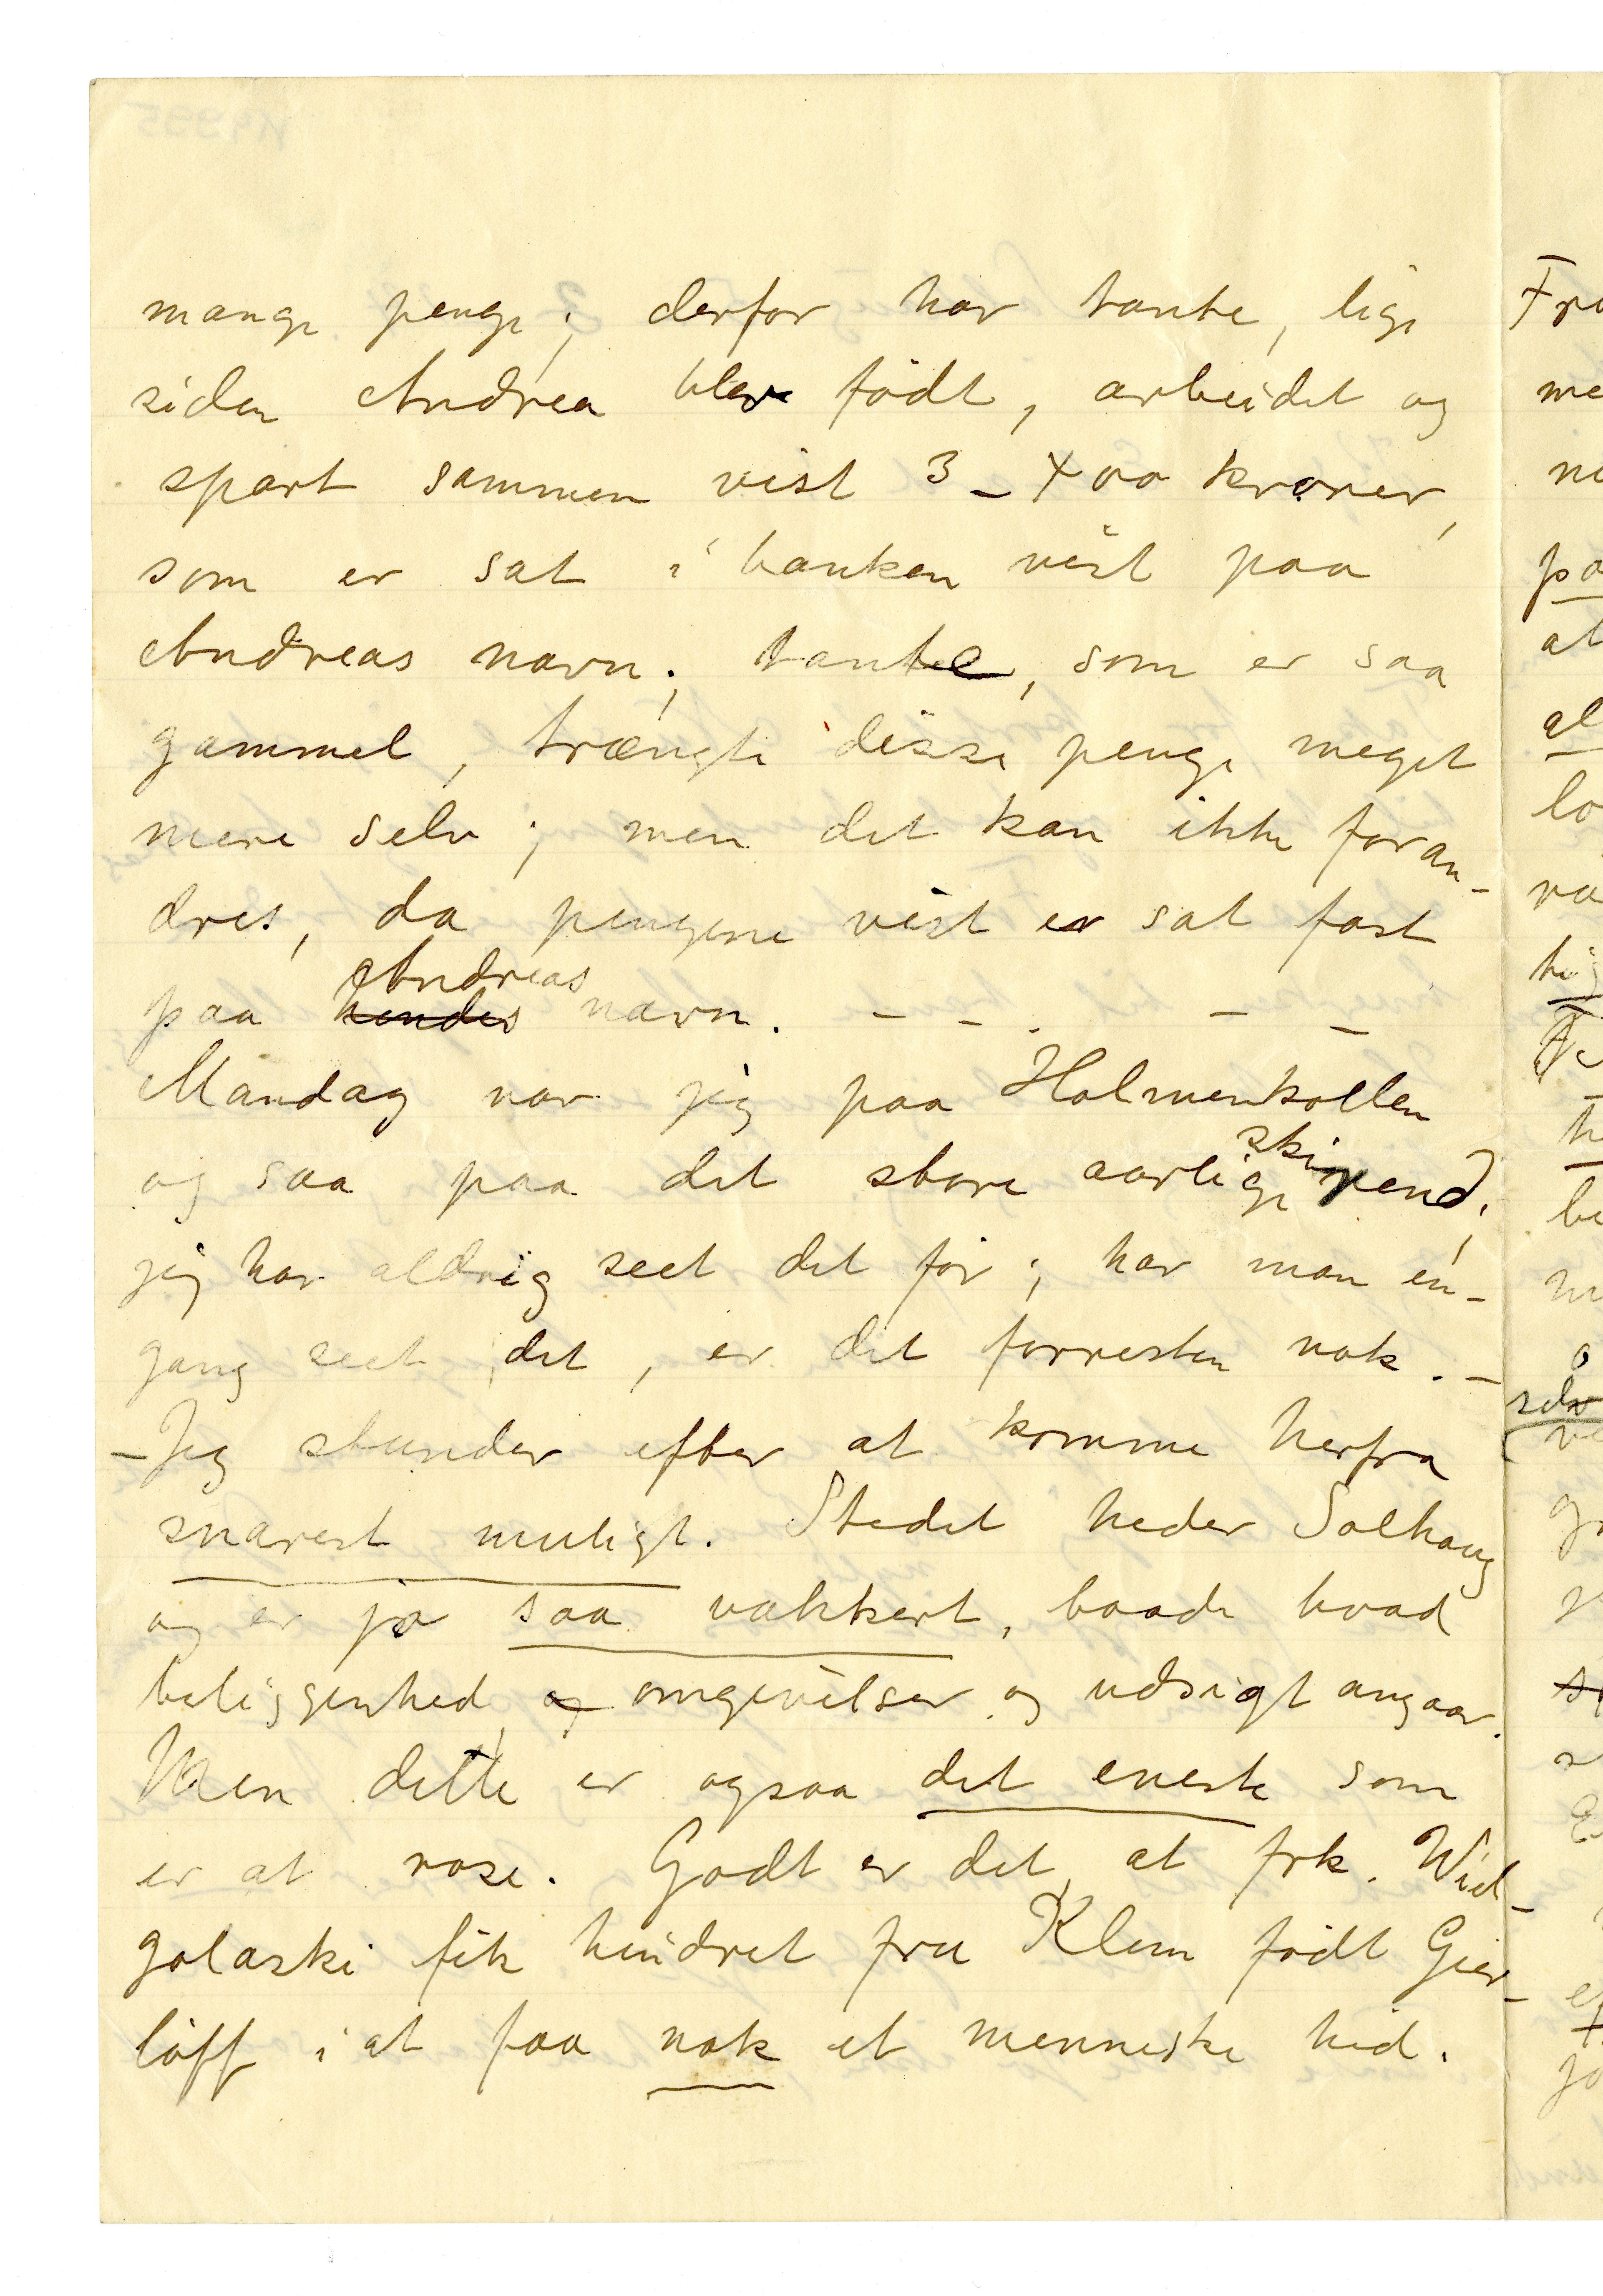 mange penge; derfor har tante, lige
siden Andrea blev födt, arbeidet og
spart sammen vist 3–400 kroner,
som er sat i banken vist paa
Andreas navn; tante, som er saa
gammel, trængte disse penge meget
mere selv; men det kan ikke foran-
dres, da pengene vist er sat fast
paa hendes Andreas navn. – – . – –
Mandag var jeg paa Holmenkollen
og saa paa det store aarlige skirend;
jeg har aldrig seet det för; har man én-
gang seet det, er det forresten nok. –
– Jeg stunder efter at komme herfra
snarest muligt. Stedet heder Solhaug
og er jo saa vakkert, baade hvad
beliggenhed og omgivelser og udsigt angaar.
Men dette er ogsaa det eneste som
er at rose. Godt er det, at frk. Wid-
golaski fik hindret fru Klem födt Gier-
löff i at faa nok et menneske hid.